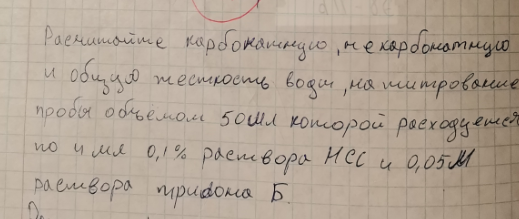 Расчитайте карбонатную, некарбонатную
и общую жесткость воды, на титрование
пробы объёмом 50мл которой расходуется
по 4 мл 0,1% раствора НСС и 0,05М
раствора трилона Б.